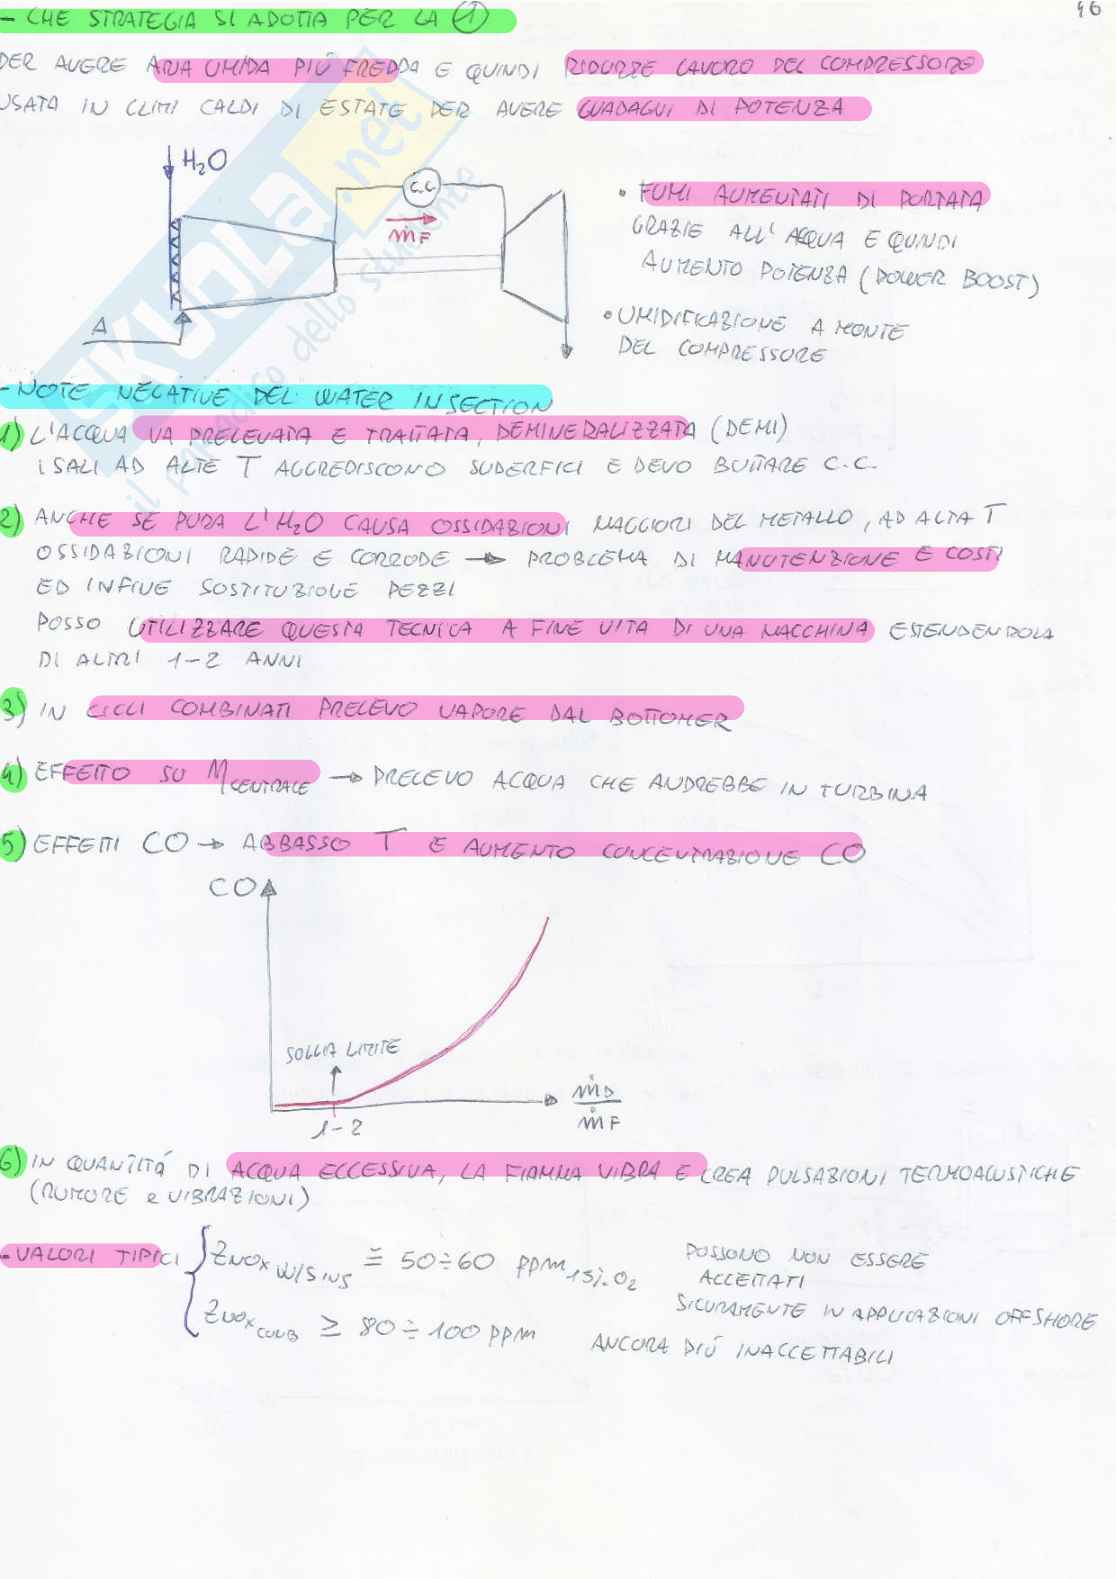 46
- CHE STRATEGIA SI ADOTTA PER LA 1
PER AVERE ARIA UMIDA PIÙ FREDDA E QUINDI RIDURRE LAVORO DEL COMPRESSORE
USATA IN CLIMI CALDI DI ESTATE PER AVERE GUADAGNI DI POTENZA
H₂O
C.C.
ṁF
A
• FUMI AUMENTATI DI PORTATA
GRAZIE ALL' ACQUA E QUINDI
AUMENTO POTENZA (POWER BOOST)
• UMIDIFICAZIONE A MONTE
DEL COMPRESSORE
- NOTE NEGATIVE DEL WATER INJECTION
1) L'ACQUA VA PRELEVATA E TRATTATA, DEMINERALIZZATA (DEMI)
I SALI AD ALTE T AGGREDISCONO SUPERFICI E DEVO BUTTARE C.C.
2) ANCHE SE PURA L'H₂O CAUSA OSSIDAZIONI MAGGIORI DEL METALLO, AD ALTA T
OSSIDAZIONI RAPIDE E CORRODE → PROBLEMA DI MANUTENZIONE E COSTI
ED INFINE SOSTITUZIONE PEZZI
POSSO UTILIZZARE QUESTA TECNICA A FINE VITA DI UNA MACCHINA ESTENDENDOLA
DI ALTRI 1-2 ANNI
3) IN CICLI COMBINATI PRELEVO VAPORE DAL BOTTOMER
4) EFFETTO SU ηCENTRALE → PRELEVO ACQUA CHE ANDREBBE IN TURBINA
5) EFFETTI CO → ABBASSO T E AUMENTO CONCENTRAZIONE CO
CO
SOGLIA LIMITE
1-2
ṁD
ṁF
6) IN QUANTITÁ DI ACQUA ECCESSIVA, LA FIAMMA VIBRA E CREA PULSAZIONI TERMOACUSTICHE
(RUMORE e VIBRAZIONI)
- VALORI TIPICI
ZNOx W/SINS ≅ 50÷60 ppm 15% O₂
POSSONO NON ESSERE
ACCETTATI
SICURAMENTE IN APPLICAZIONI OFFSHORE
ZNOx COMB ≥ 80÷100 ppm
ANCORA PIÚ INACCETTABILI
SKUOLA.net
il paradiso dello studente